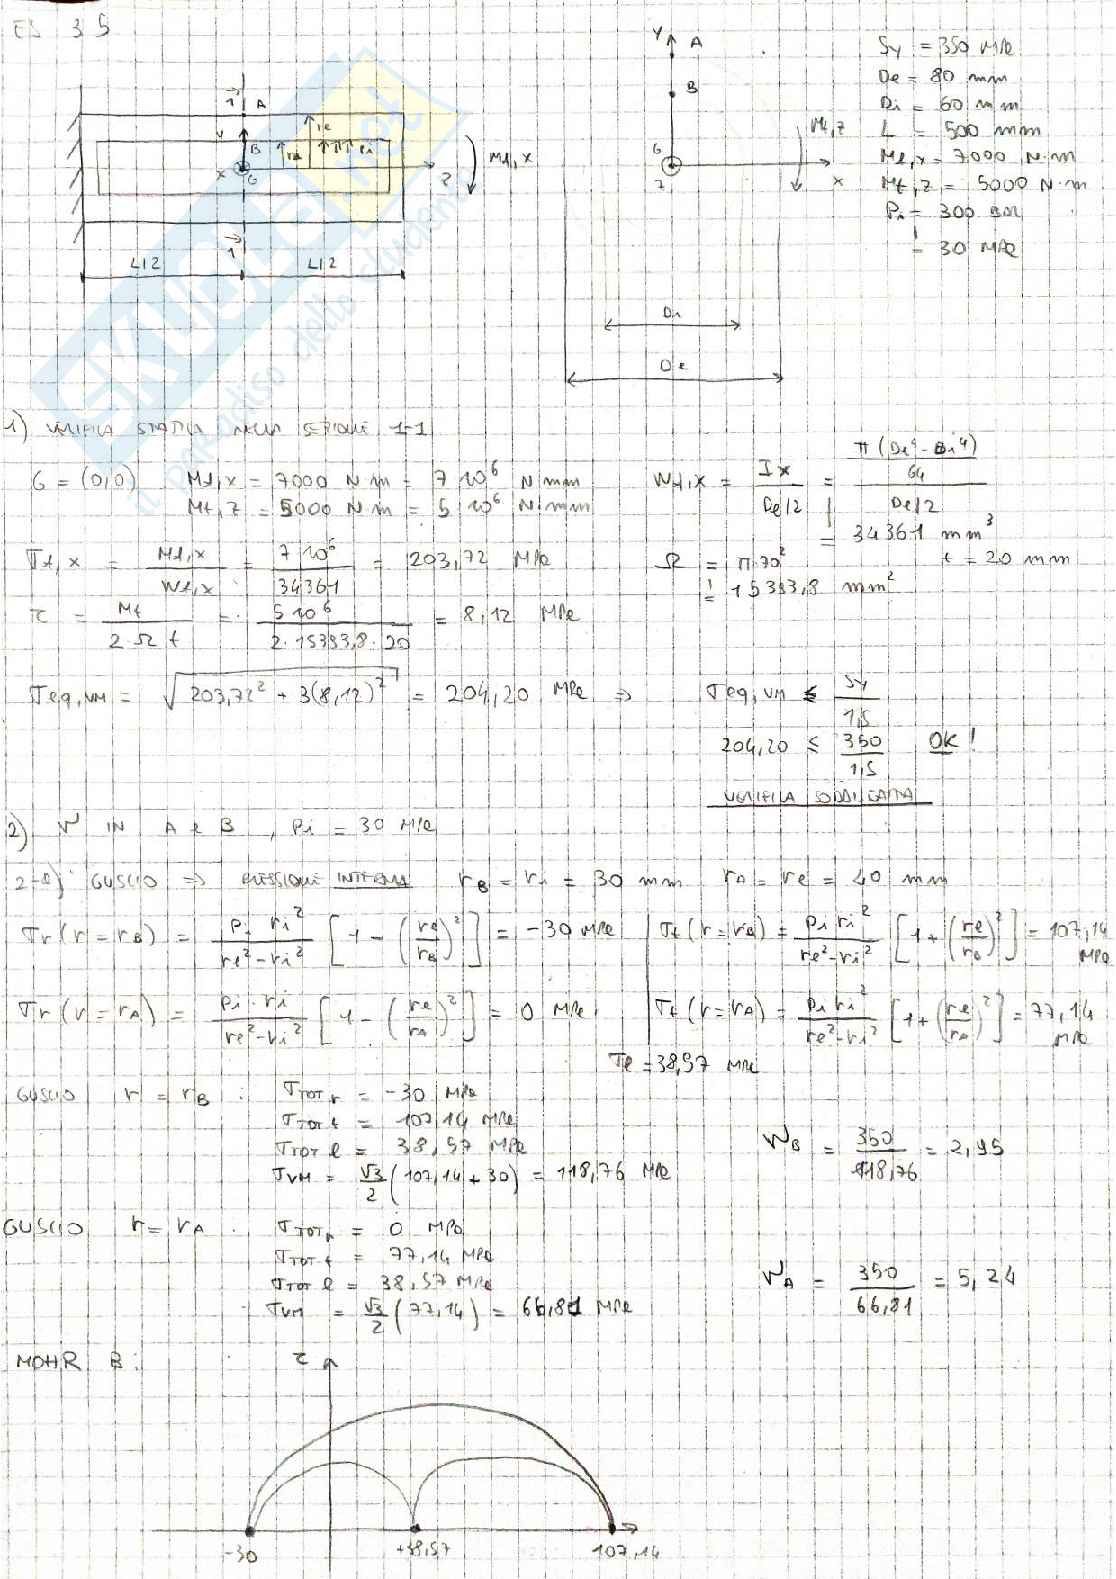 ES 35
Sy = 350 MPa
De = 80 mm
Di = 60 mm
L = 500 mm
Mf,x = 7000 N·m
Mt,z = 5000 N·m
Pi = 300 BAR
= 30 MPa
1
A
Y
B
G
X
re
ri
Pi
Z
Mf,x
1
L/2
L/2
Y
A
B
G
Z
X
Mt,z
Di
De
SKUOLA.net
il paradiso dello studente
1) VERIFICA STATICA NELLA SEZIONE 1-1
G = (0,0) Mf,x = 7000 N m = 7 10^6 N mm
Mt,z = 5000 N m = 5 10^6 N·mm
Wf,x = Ix / De/2 = π(De^4 - Di^4)/64 / De/2
= 34361 mm^3
σf,x = Mf,x / Wf,x = 7 10^6 / 34361 = 203,72 MPa
Ω = π·70^2 t = 20 mm
= 15393,8 mm^2
τ = Mt / 2 Ω t = 5 10^6 / 2·15393,8·20 = 8,12 MPa
σeq,VM = √203,72^2 + 3(8,12)^2 = 204,20 MPa ⇒ σeq,VM ≤ Sy / 1,5
204,20 ≤ 350 / 1,5 OK!
VERIFICA SODDISFATTA
2) ν IN A e B , Pi = 30 MPa
2-a) GUSCIO ⇒ PRESSIONE INTERNA rB = ri = 30 mm rA = re = 40 mm
σr (r = rB) = Pi ri^2 / re^2-ri^2 [1 - (re/rB)^2] = -30 MPa
σt (r = rB) = Pi ri^2 / re^2-ri^2 [1 + (re/rB)^2] = 107,14 MPa
σr (r = rA) = Pi · ri / re^2-ri^2 [1 - (re/rA)^2] = 0 MPa
σt (r = rA) = Pi ri^2 / re^2-ri^2 [1 + (re/rA)^2] = 77,14 MPa
σl = 38,57 MPa
GUSCIO r = rB : σTOT r = -30 MPa
σTOT t = 107,14 MPa
σTOT l = 38,57 MPa
σVM = √3/2 (107,14 + 30) = 118,76 MPa
νB = 350 / 118,76 = 2,95
GUSCIO r = rA : σTOT r = 0 MPa
σTOT t = 77,14 MPa
σTOT l = 38,57 MPa
σVM = √3/2 (77,14) = 66,81 MPa
νA = 350 / 66,81 = 5,24
MOHR B :
τ
-30
+38,57
107,14